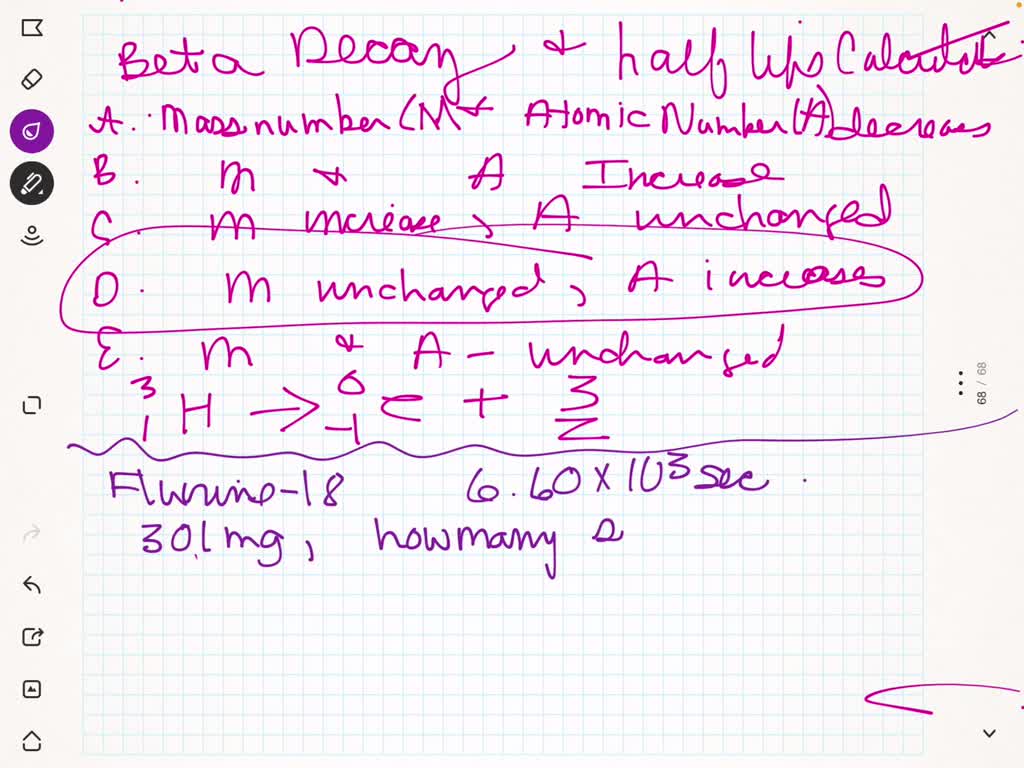 Beta Decay & half life Calculate
A. Mass number (M & Atomic Number (A) decreases
B. M & A Increase
C. M increase, A unchanged
D. M unchanged, A increases
E. M & A - unchanged
3 1 H -> 0 -1 e + 3 2
Flurine-18 6.60 x 10^3 sec.
30.1 mg, how many
68 / 68